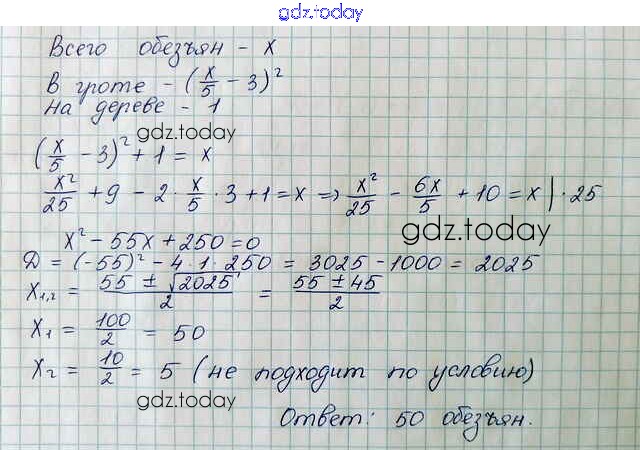 gdz.today
Всего обезьян - x
В гроте - (x/5 - 3)²
на дереве - 1
gdz.today
(x/5 - 3)² + 1 = x
x²/25 + 9 - 2 · x/5 · 3 + 1 = x => x²/25 - 6x/5 + 10 = x | · 25
gdz.today
x² - 55x + 250 = 0
Д = (-55)² - 4 · 1 · 250 = 3025 - 1000 = 2025
x₁,₂ = (55 ± √2025)/2 = (55 ± 45)/2
x₁ = 100/2 = 50
x₂ = 10/2 = 5 (не подходит по условию)
gdz.today
Ответ: 50 обезьян.